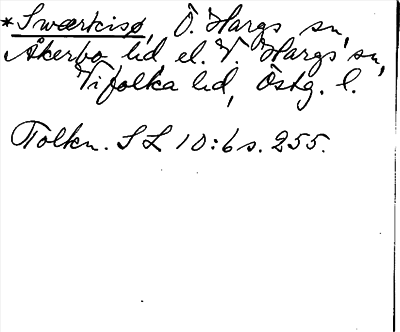 *Swærkisø, Ö. Hargs sn,
Åkerbo hd el. V. Hargs sn,
Vifolka hd, Östg. l.
Tolkn. SL 10:6 s. 255.